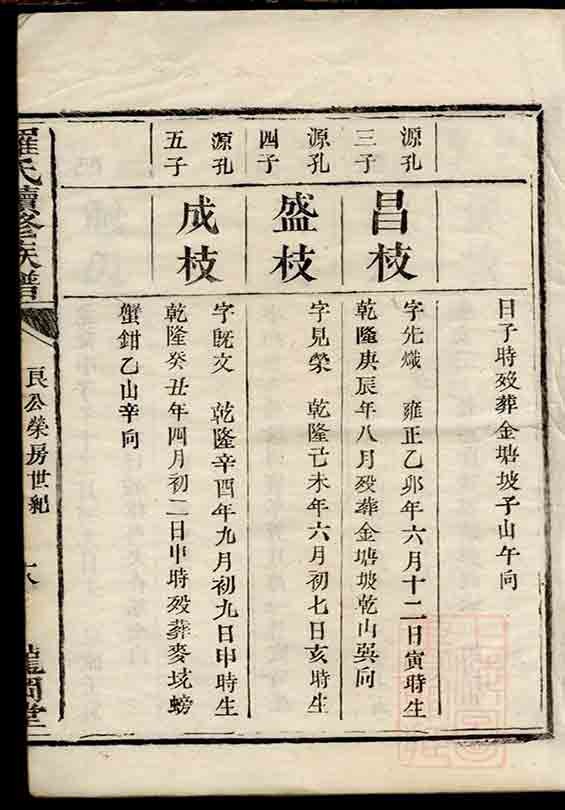 日子時歿葬金塘坡子山午向
源孔
三子
昌枝
字先熾 雍正乙卯年六月十二日寅時生
乾隆庚辰年八月歿葬金塘坡乾山巽向
源孔
四子
盛枝
字見榮 乾隆己未年六月初七日亥時生
源孔
五子
成枝
字旣文 乾隆辛酉年九月初九日申時生
乾隆癸丑年四月初二日申時歿葬麥垅螃
蟹鉗乙山辛向
羅氏續修族譜
良公榮房世紀
龍岡堂